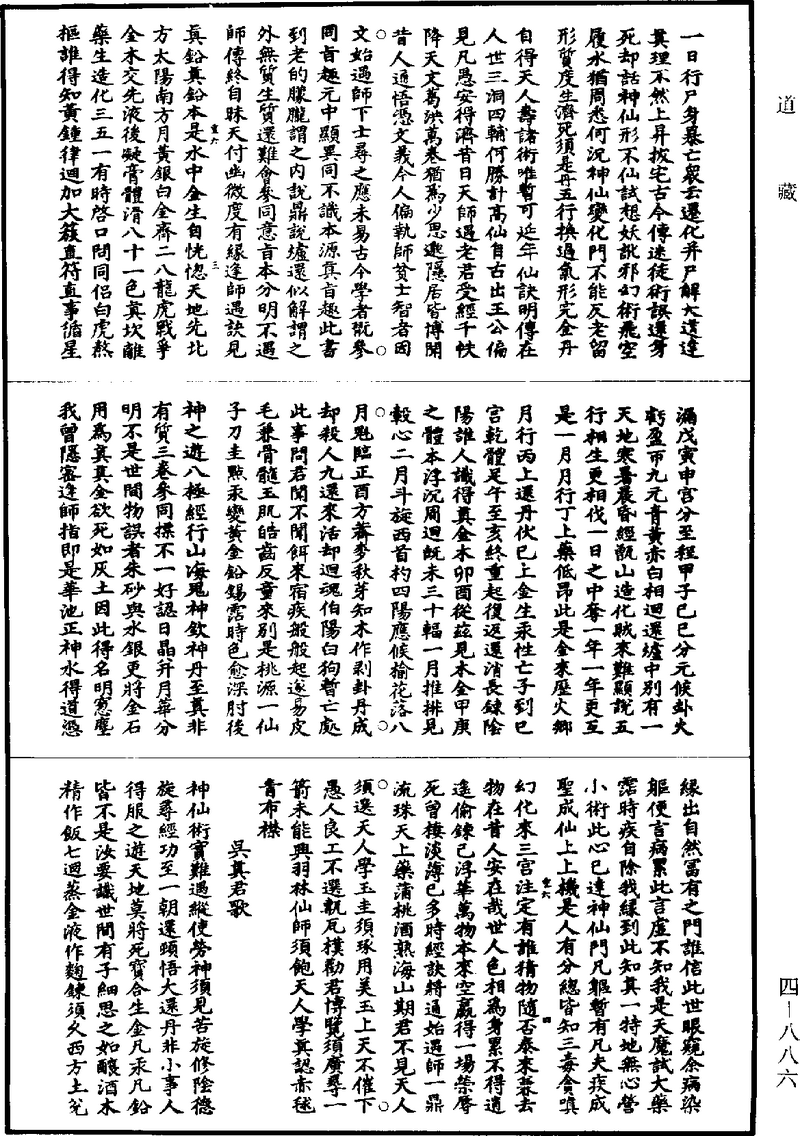 道藏
一日行尸身暴亡眾云還化并尸解大道違
真理不然上昇拔宅古今傳迷徒術誤還身
死却話神仙形不仙試想妖訛邪幻術飛空
履水猶周悉何況神仙變化門不能反老留
形質度生濟死須是丹五行換過氣形完金丹
自得天人壽諸術唯暫可延年仙訣明傳在
人世三洞四輔何勝計高仙自古出王公偏
見凡愚安得濟昔日天師遇老君受經千帙
降天文萬洪萬卷猶為少思邈隱居皆博聞
昔人通悟憑文義今人偏執師貧士智者因
文始遇師下士尋之應未易古今學者概參
同旨趣元中顯異同不識本源真旨趣此書
到老的朦朧謂之內說鼎說爐還似解謂之
外無質生質還難會參同意旨本分明不遇
師傳終自昧天付幽微度有緣逢師遇訣見
真鉛真鉛本是水中金生自恍惚天地先北
方太陽南方月黃銀白金齊二八龍虎戰爭
全本交先液後凝膏體滑八十一色真坎離
藥生造化三五一有時啓口問同侶白虎熬
樞誰得知黃鍾律迴加大簇直符直事循星
漏戊寅申宮分至程甲子己巳分元候卦火
虧盈帀九元青黃赤白相迴還爐中別有一
天地寒暑晨昏經甑山造化賊來難顯說五
行相生更相伐一日之中奪一年一年更互
是一月月行丁上藥低昂此是金來歷火鄉
月行丙上還丹伏巳上金生汞性亡子到巳
宮乾體足午至亥終重起復返還消長鍊陰
陽誰人識得真金木卯酉從茲見木金甲庚
之體本浮沉周迴既未三十輻一月推排見
轂心二月斗旋西首杓四陽應候榆花落八
月兔臨正酉方蕎麥秋芽知木作剥卦丹成
却殺人九還來活却迴魂伯陽白狗暫亡處
此事問君聞不聞餌來宿疾般般起遂易皮
毛兼骨髓玉肌皓齒反童來別是桃源一仙
子刀圭㸃汞變黃金鉛錫霑時色愈深肘後
神之遊八極經行山海鬼神欽神丹至真非
有質三卷參同摽不一好認日晶并月華分
明不是世間物誤者朱砂與水銀更將金石
用為真真金欲死如灰土因此得名明窻塵
我曾隱密逢師指即是華池正神水得道憑
緣出自然富有之門誰信此世眼窺余病染
軀便言病累此言虛不知我是天魔試大藥
霑時疾自除我緣到此知真一特地無心營
小術此心已達神仙門凡軀暫有凡夫疾成
聖成仙上上機是人有分總皆知三毒貪嗔
幻化來三宮注定有誰積物隨否泰來暮去
物在昔人安在哉世人色相為身累不得逍
遙偷鍊己浮華萬物本來空贏得一場榮辱
死曾棲淡薄已多時經訣將通始遇師一鼎
流珠天上藥蒲桃酒熟海山期君不見天人
須選天人學玉圭須琢用美玉上天不催下
愚人良工不選甎瓦樸勸君博覽須廣尋一
箭未能與羽林仙師須飽天人學真認赤毬
青布襟
吳真君歌
神仙術實難遇縱使勞神須見苦旋修陰德
旋尋經功至一朝還頸悟大還丹非小事人
得服之遊天地莫將死寶合生金凡汞凡鉛
皆不是汝要識世間有子細思之如釀酒木
精作飯七迴蒸金液作麴鍊須久西方土兌
四-八八六